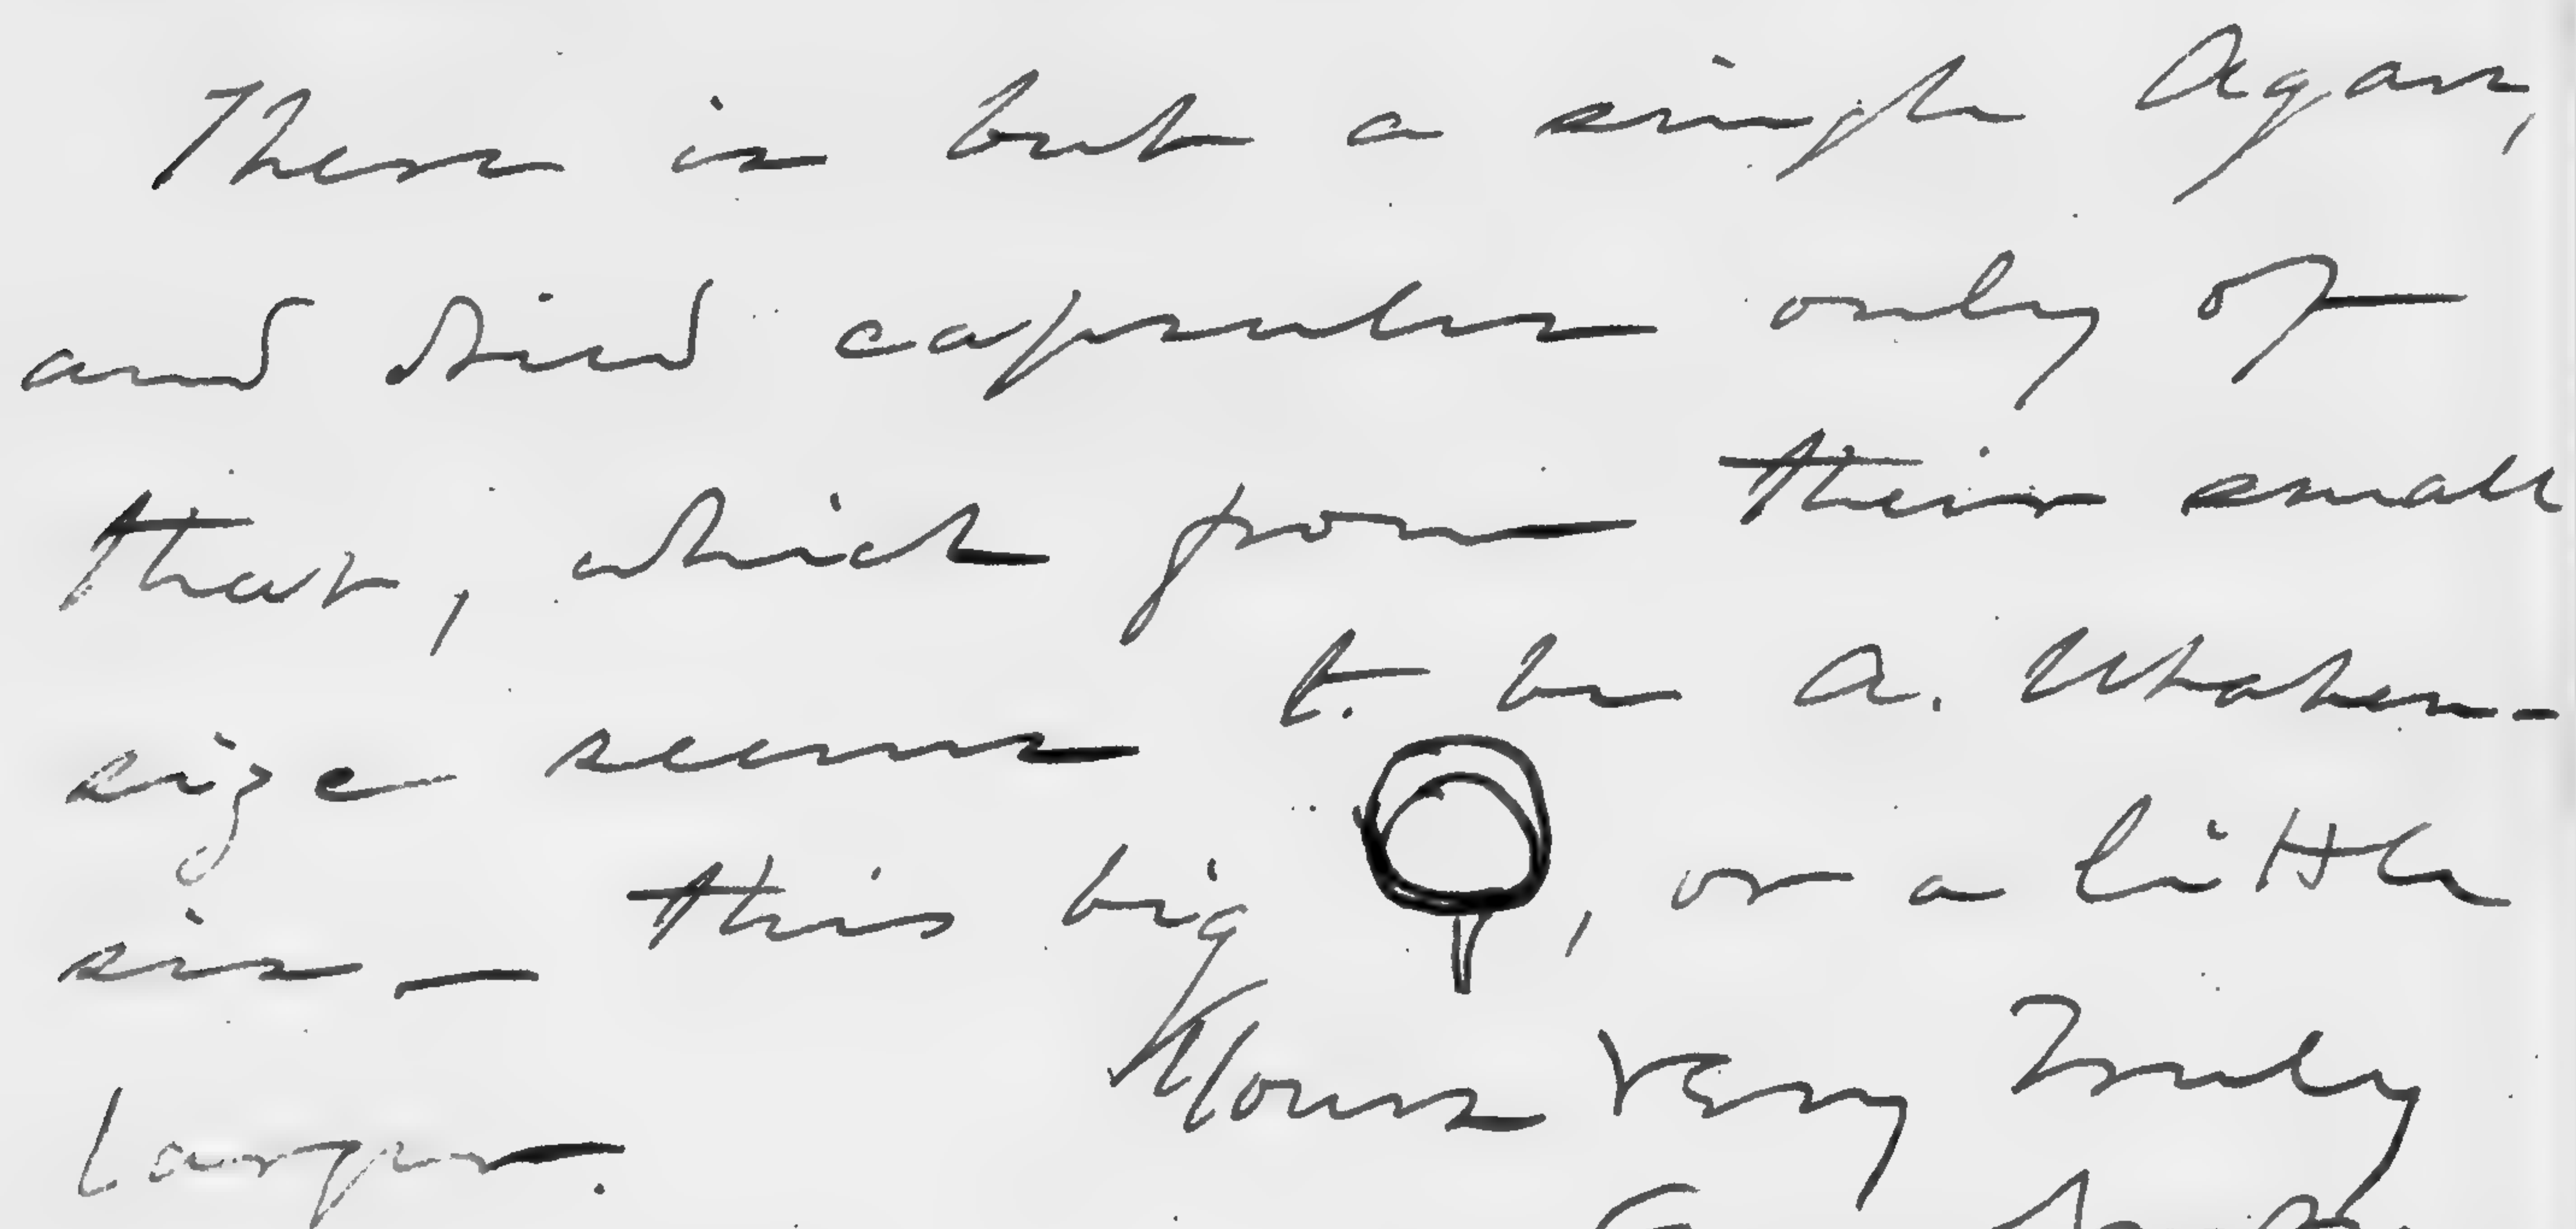 There is but a single Agave,
and dried capsules only of
that, which from their small
size seems to be A. Utahen-
sis — this big , or a little
larger.
Yours very truly